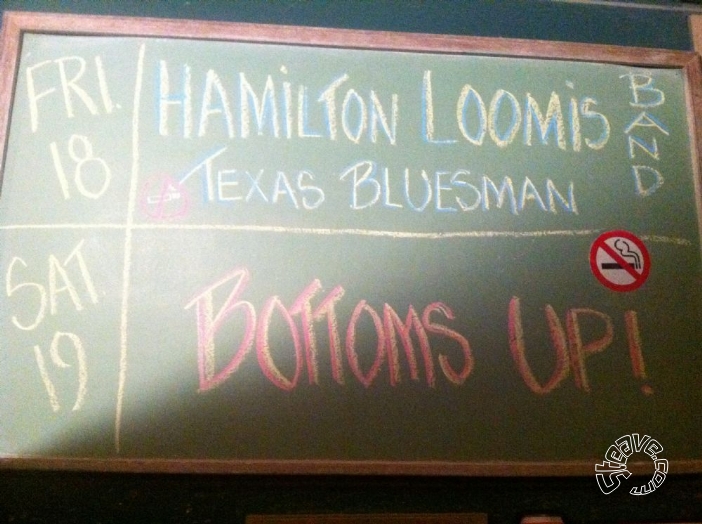 FRI. 18
HAMILTON LOOMIS BAND
TEXAS BLUESMAN
SAT. 19
BOTTOMS UP!
Steave.com